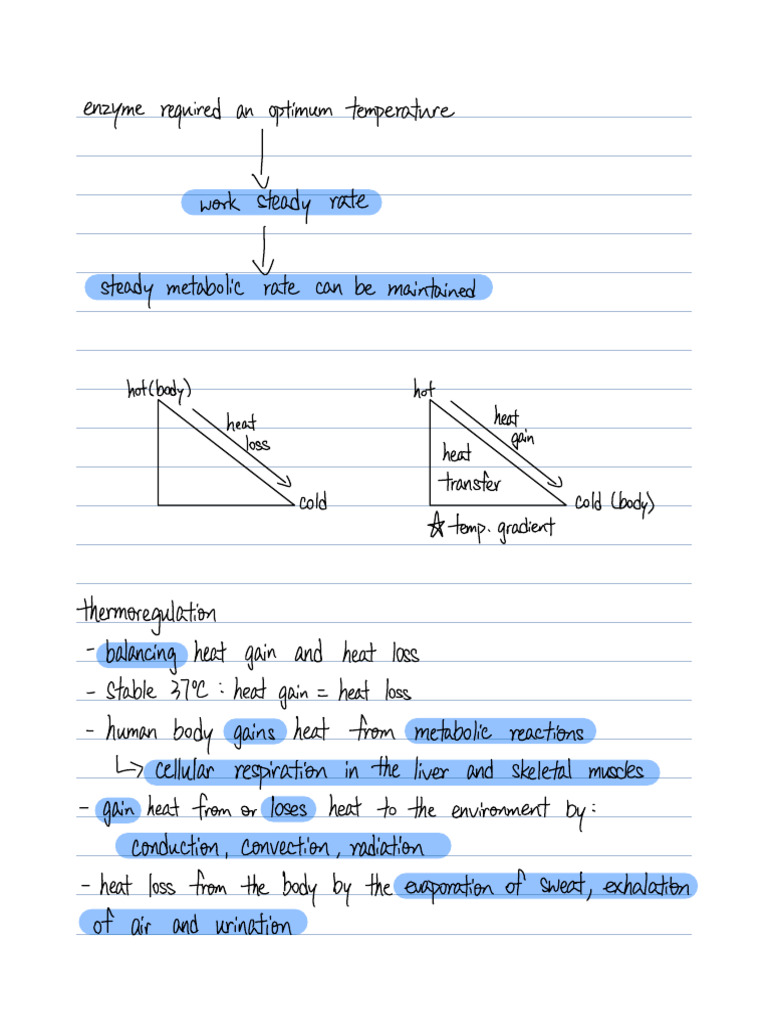 enzyme required an optimum temperature
work steady rate
steady metabolic rate can be maintained
hot (body)
heat
loss
cold
hot
heat
gain
heat
transfer
cold (body)
☆ temp. gradient
thermoregulation
- balancing heat gain and heat loss
- stable 37°C : heat gain = heat loss
- human body gains heat from metabolic reactions
↳ cellular respiration in the liver and skeletal muscles
- gain heat from or loses heat to the environment by:
conduction, convection, radiation
- heat loss from the body by the evaporation of sweat, exhalation
of air and urination